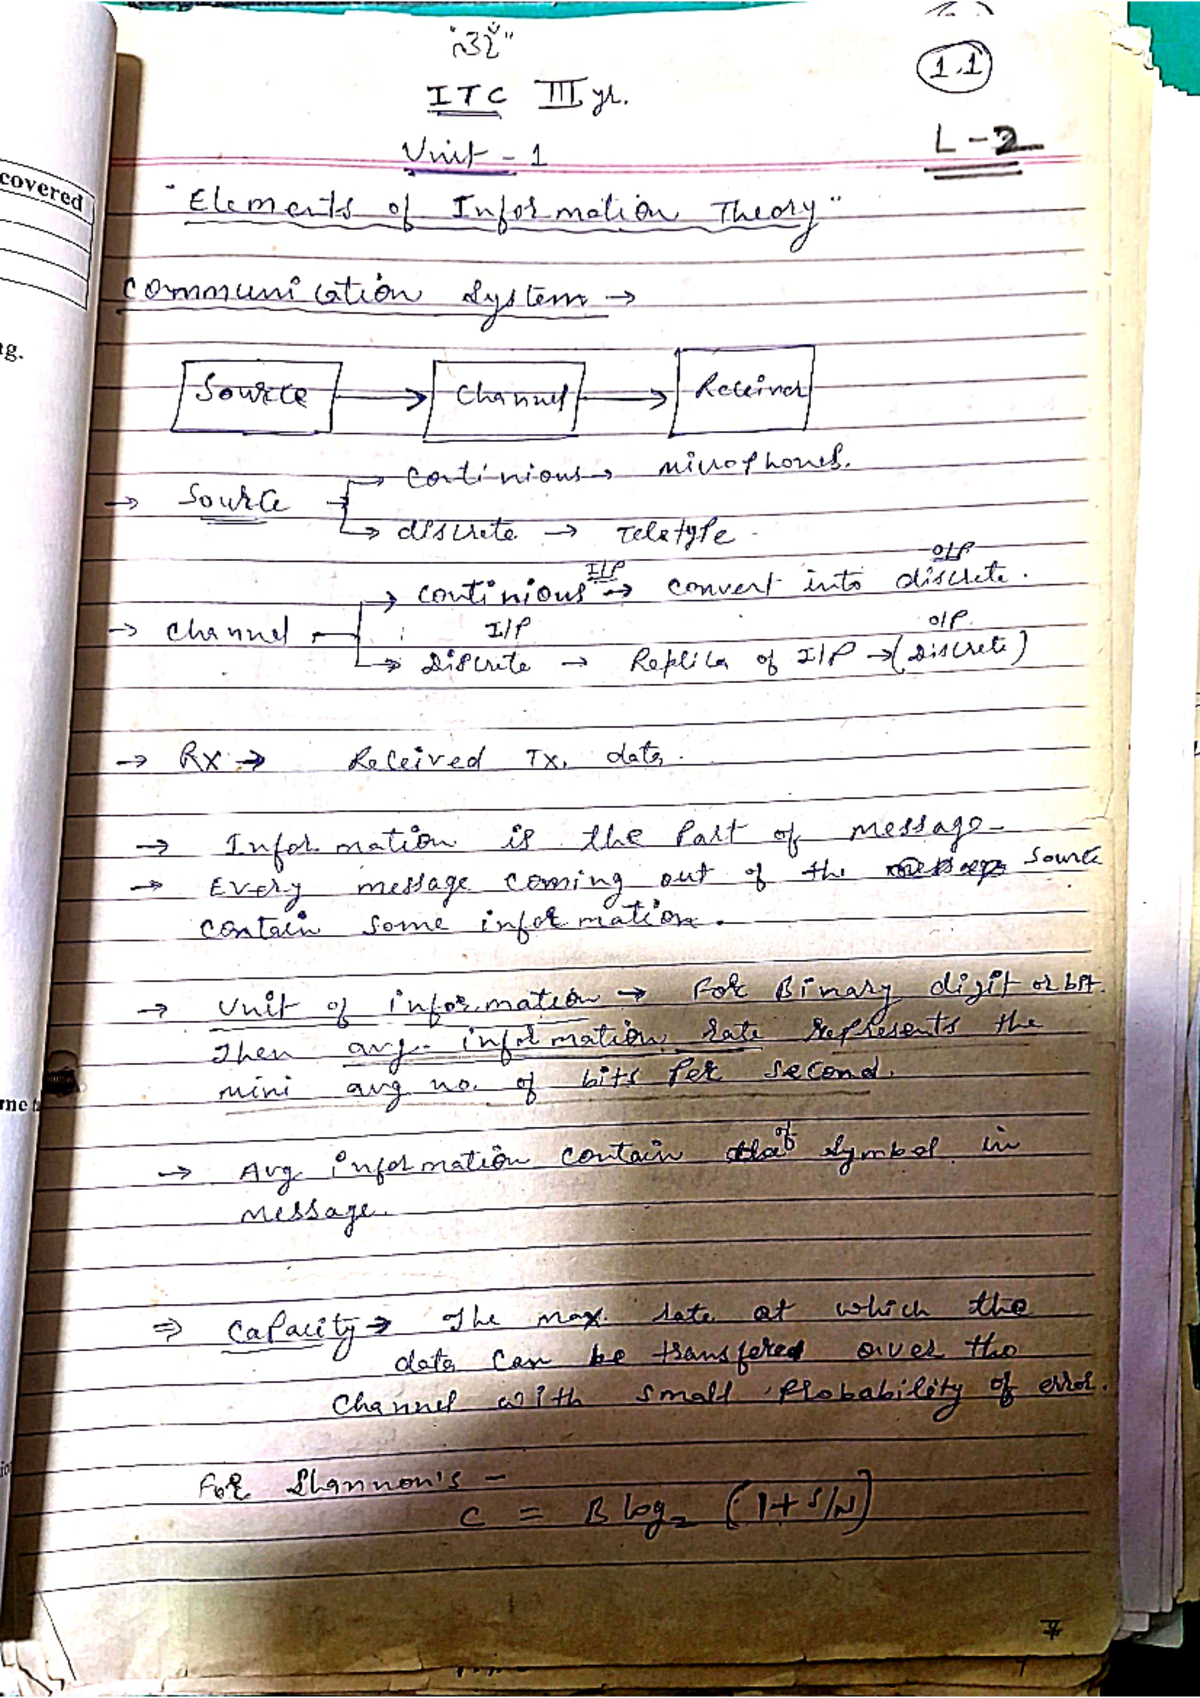 1.1
ITC III yr.
Unit - 1
L - 2
"Elements of Information Theory"
Communication System →
Source → Channel → Receiver
→ Source → Continious → Microphones.
→ discrete → Teletype.
→ Channel → continious I/P → convert into discrete. O/P
→ Discrete I/P → Replica of I/P → (Discrete) O/P
→ Rx → Received Tx. data.
→ Information is the Part of message.
→ Every message coming out of the source
contain some information.
→ Unit of information → For Binary digit or bit.
Then avg. information rate represents the
mini avg no. of bits Per second.
→ Avg information contain of symbol in
message.
⇒ Capacity → The max. rate at which the
data can be transfered over the
Channel with small Probability of error.
For Shannon's -
C = B log₂ (1 + S/N)
covered
ng.
me